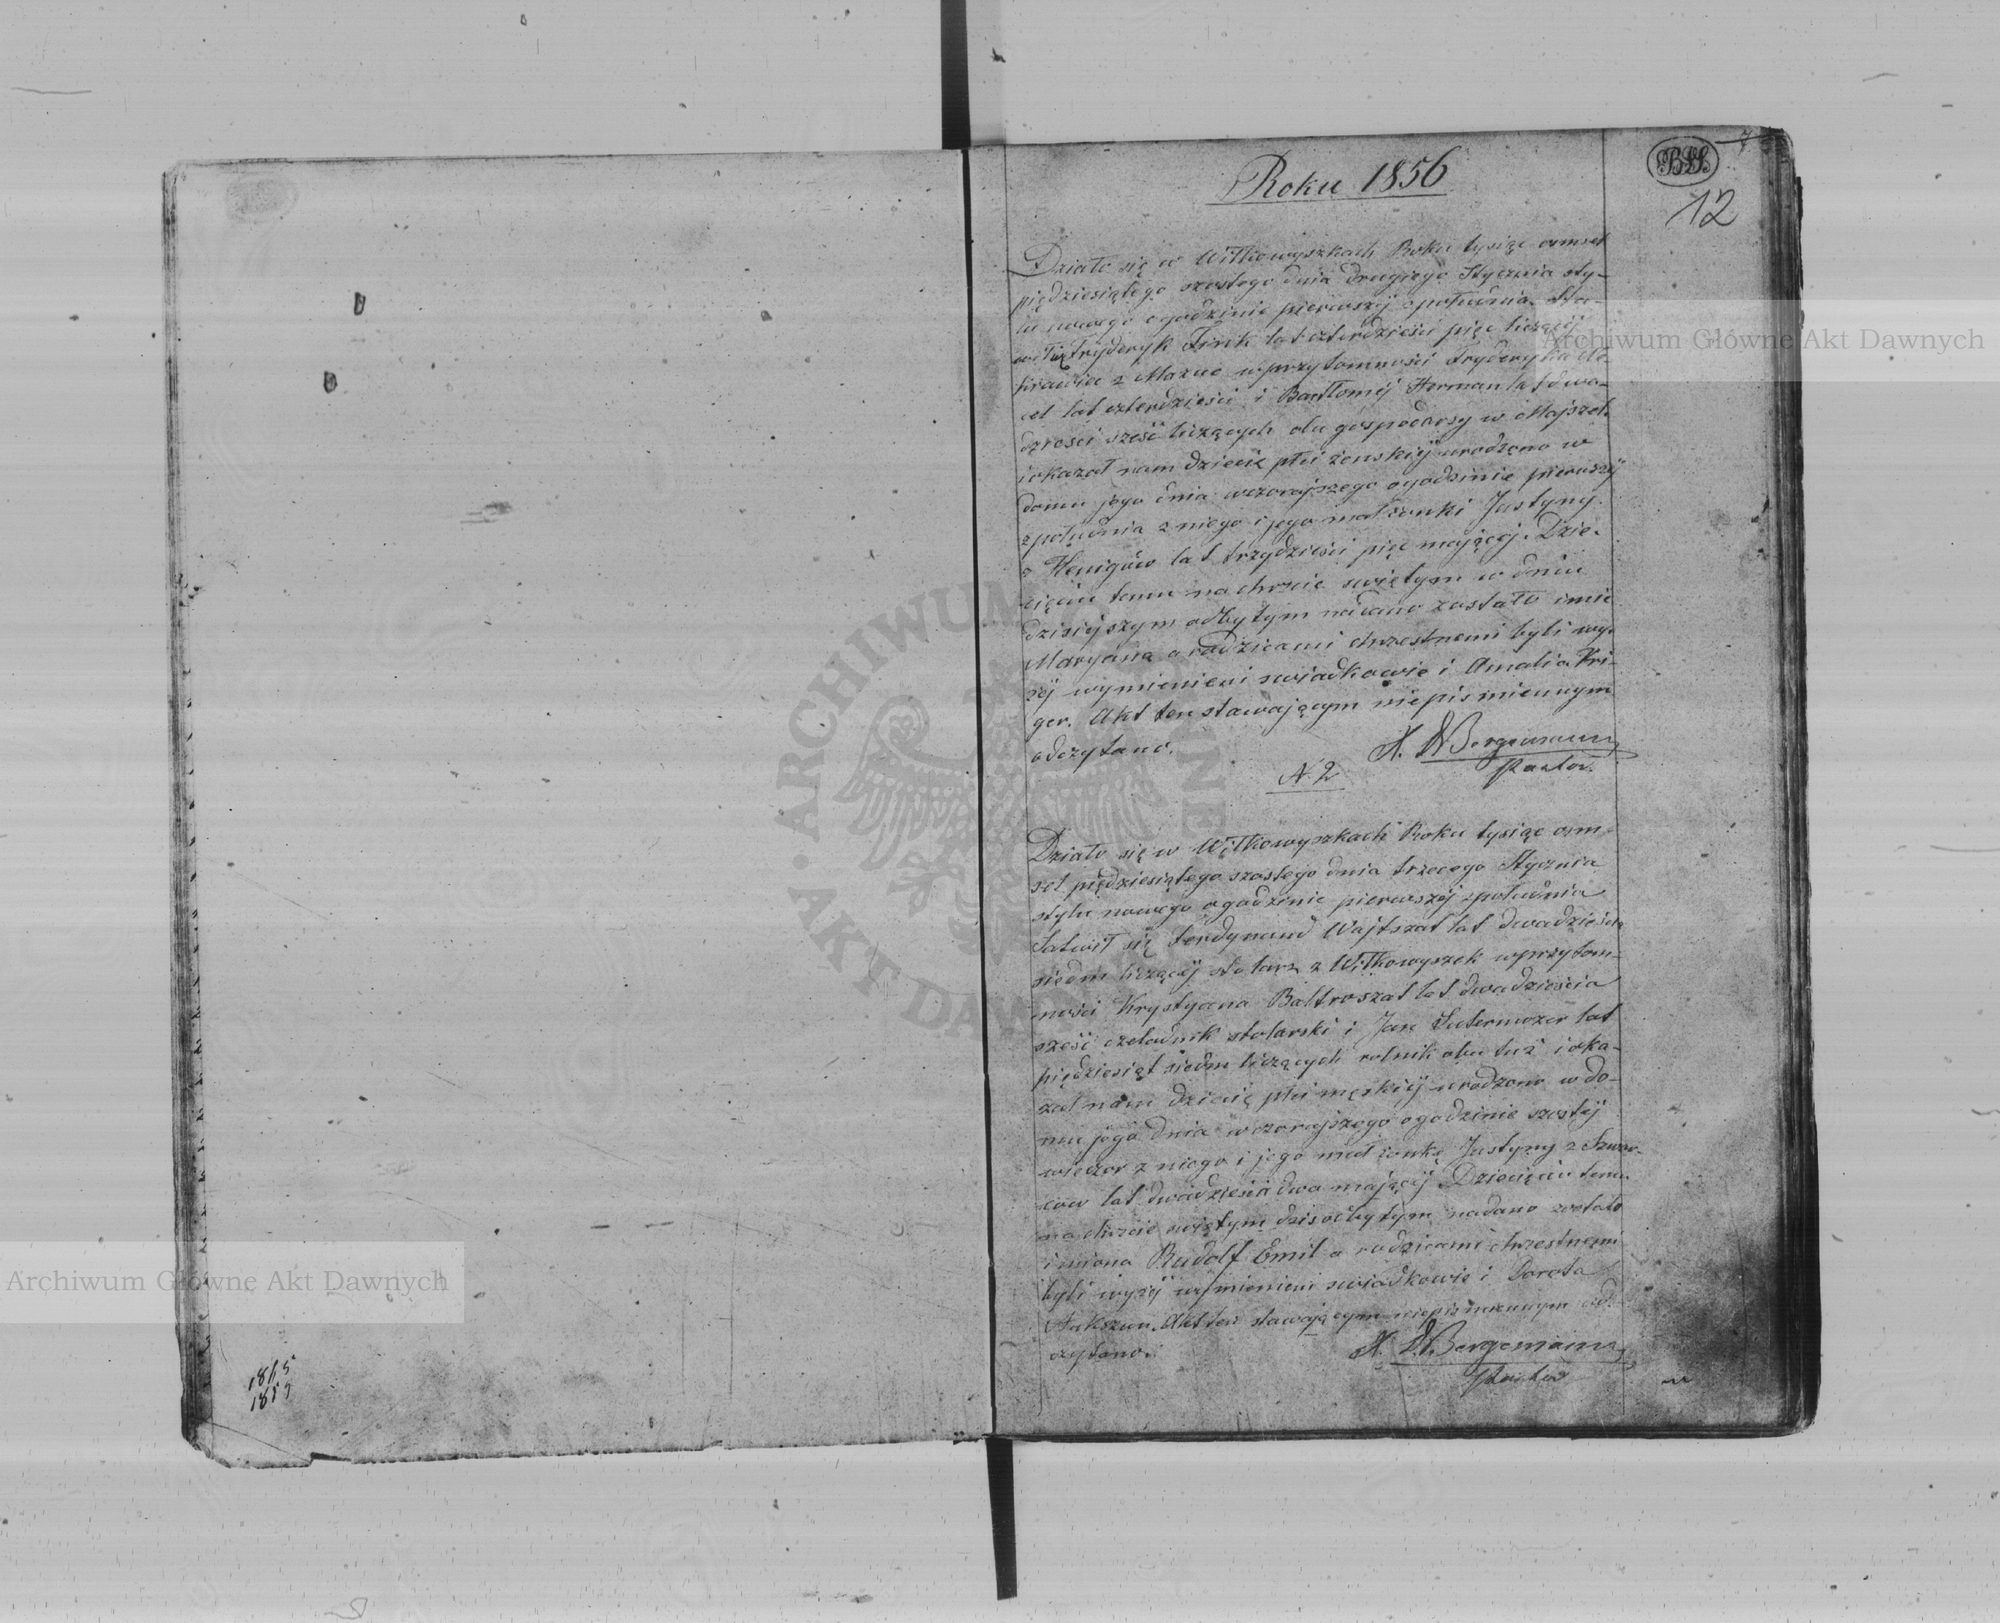 Roku 1856
12
Działo się w Wiłkowyszkach Roku tysiąc ośmset
pięćdziesiątego szostego dnia drugiego Stycznia sty-
lu nowego o godzinie pierwszéj z południa. Sta-
wił się Fryderyk Frirk lat czterdzieści pięc liczący
z w przytomności Fryderyka
lat czterdzieści i Bartłomiéj Herman lat dwa-
dzieści sześć liczących obu gospodarzy w
i okazał nam dziecię płci żenskiéj urodzone w
domu jego dnia wczorajszego o godzinie pierwszéj
z południa z niego i jego małżonki Justyny
z Henigów lat trzydzieści pięc mającéj. Dzie-
cięciu temu na chrzcie swiętym w dniu
dzisiéjszym odbytym nadano zostało imie
Maryanna a rodzicami chrzestnemi byli wy-
żéj wymienieni swiadkowie i Amalia Kri-
ger. Akt ten stawającym niepismiennym
odczytano.
X. Bergemann
Pastor.
N. 2
Działo się w Wiłkowyszkach Roku tysiąc ośm-
set pięćdziesiątego szostego dnia trzeciego Stycznia
stylu nowego o godzinie pierwszéj z południa
Stawił się Ferdynand Wajtszat lat dwadzieścia
siedm liczący stolarz z Wiłkowyszek w przytom-
ności Krystyana Baltroszat lat dwadzieścia
sześć czeladnik stolarski i Jan lat
pięćdziesiąt siedm liczących rolnik obu tuż i oka-
zał nam dziecię płci męskiéj urodzone w do-
mu jego dnia wczorajszego o godzinie szostéj
wieczor z niego i jego małżonki Justyny z
lat dwadzieścia dwa mającéj Dziecięciu temu
na chrzcie swiętym dzis odbytym nadano zostało
imiona Rudolf Emil a rodzicami chrzestnemi
byli wyżéj wymienieni swiadkowie i Dorota
Akt ten stawającym niepismiennym od-
czytano.
X. Bergemann
Pastor
Archiwum Główne Akt Dawnych
Archiwum Główne Akt Dawnych